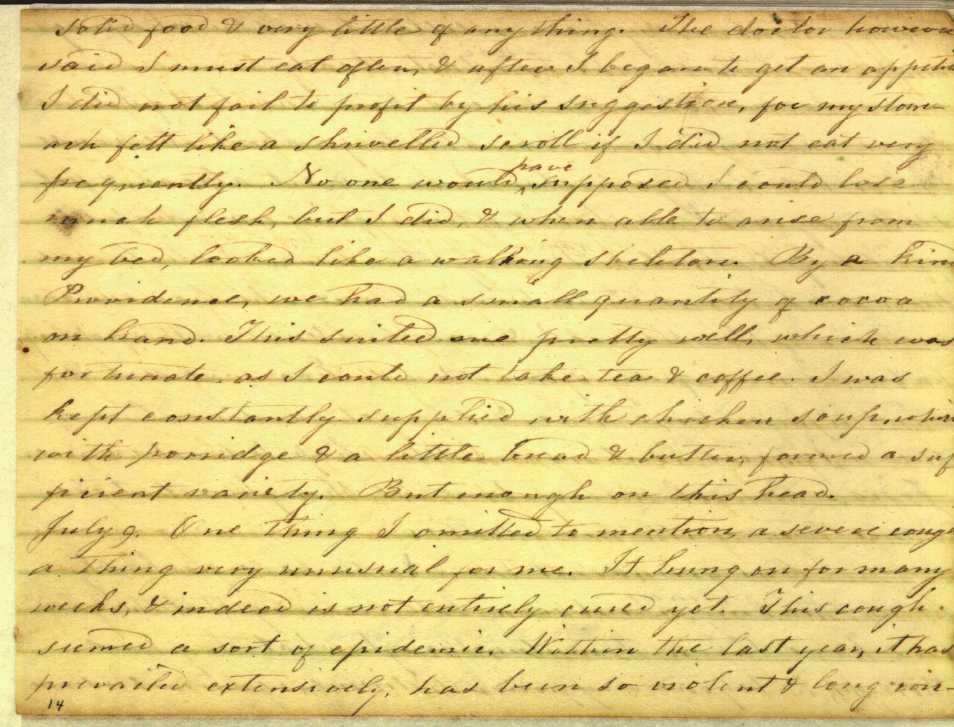 solid food & very little of any thing. The doctor however
said I must eat often, & after I began to get an appetite
I did not fail to profit by his suggestion, for my stom-
ach felt like a shrivelled scroll if I did not eat very
frequently. No one would have supposed I could lose
much flesh, but I did, & when able to arise from
my bed, looked like a walking skeleton. By a kind
Providence, we had a small quantity of cocoa
on hand. This suited me pretty well, which was
fortunate, as I could not take tea & coffee. I was
kept constantly supplied with chicken soup, which
with porridge & a little bread & butter, formed a suf
ficient variety. But enough on this head.
July 9. One thing I omitted to mention, a severe cough
a thing very unusual for me. It hung on for many
weeks, & indeed is not entirely cured yet. This cough
seemed a sort of epidemic. Within the last year, it has
prevailed extensively, has been so violent & long con-
14